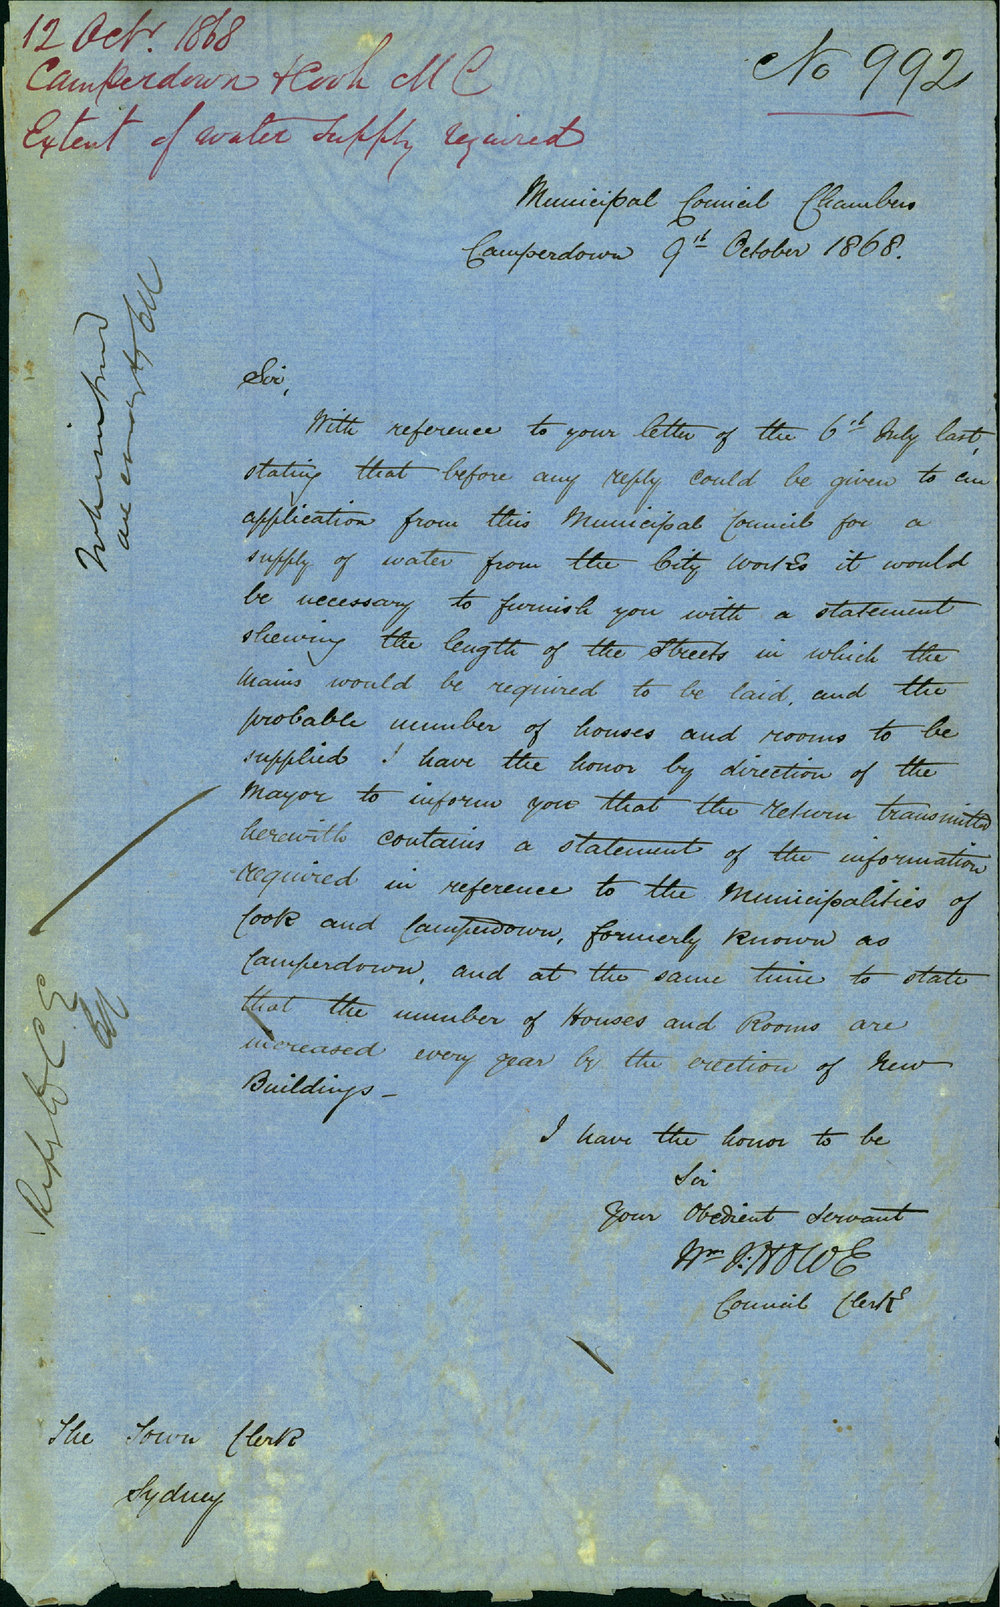 12 Octr. 1868
Camperdown & Cook M C
Extent of water supply required
No 992
Municipal Council Chambers
Camperdown 9th October 1868.
Sir,
With reference to your letter of the 6th July last,
stating that before any reply could be given to an
application from this Municipal Council for a
supply of water from the City Works it would
be necessary to furnish you with a statement
shewing the length of the Streets in which the
Mains would be required to be laid, and the
probable number of houses and rooms to be
supplied I have the honor by direction of the
Mayor to inform you that the return transmitted
herewith contains a statement of the information
required in reference to the Municipalities of
Cook and Camperdown, formerly known as
Camperdown, and at the same time to state
that the number of Houses and Rooms are
increased every year by the erection of New
Buildings -
I have the honor to be
Sir
Your Obedient Servant
Wm J. HOWE
Council Clerk
The Town Clerk
Sydney